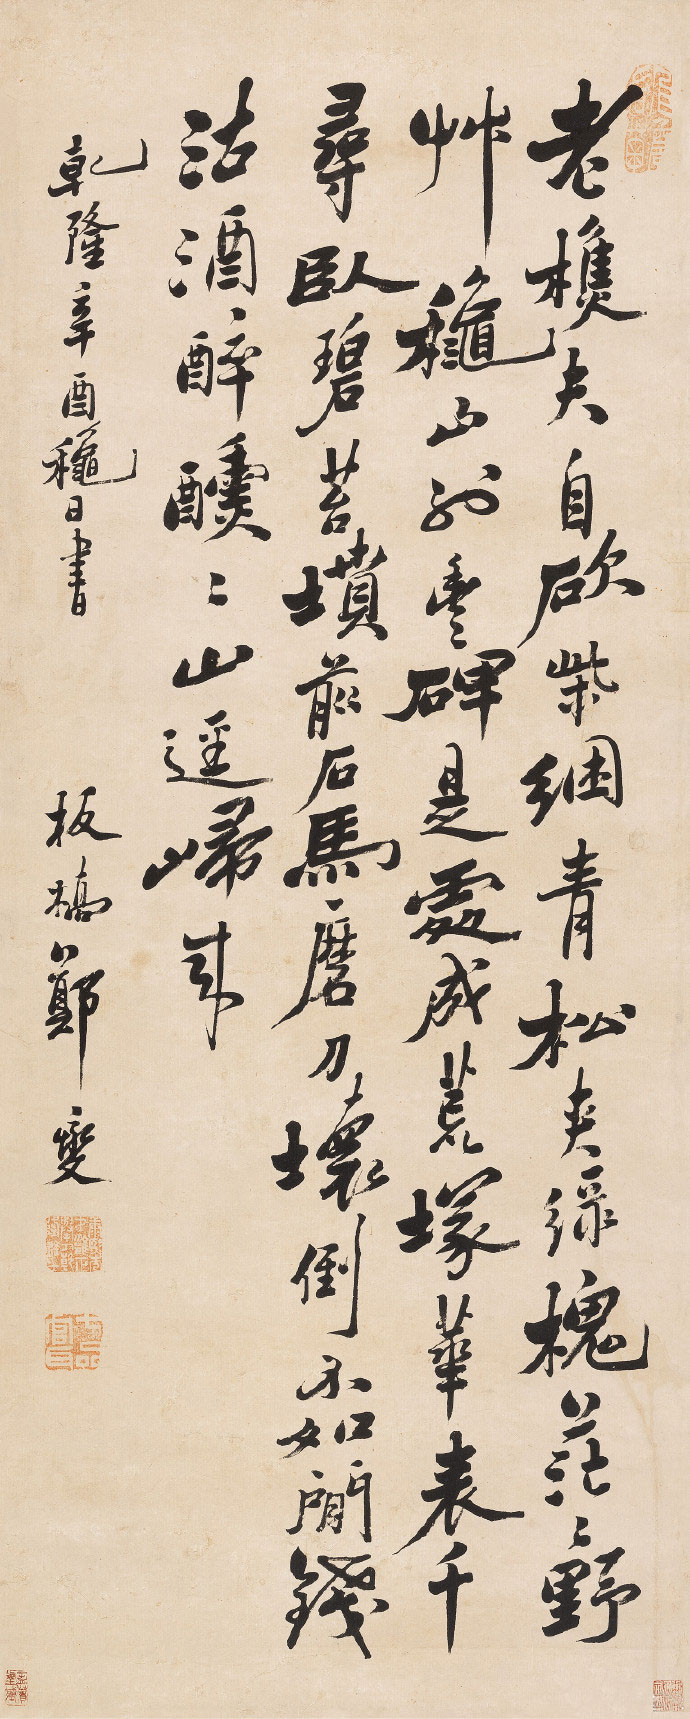 老樵夫自砍柴綑青松夾綠槐茫〻野
艸龝山外豐碑是處成荒塚華表千
尋臥碧苔墳前石馬磨刀壞倒不如閒錢
沽酒醉醺〻山逕歸來
乾隆辛酉龝日書 板橋鄭燮